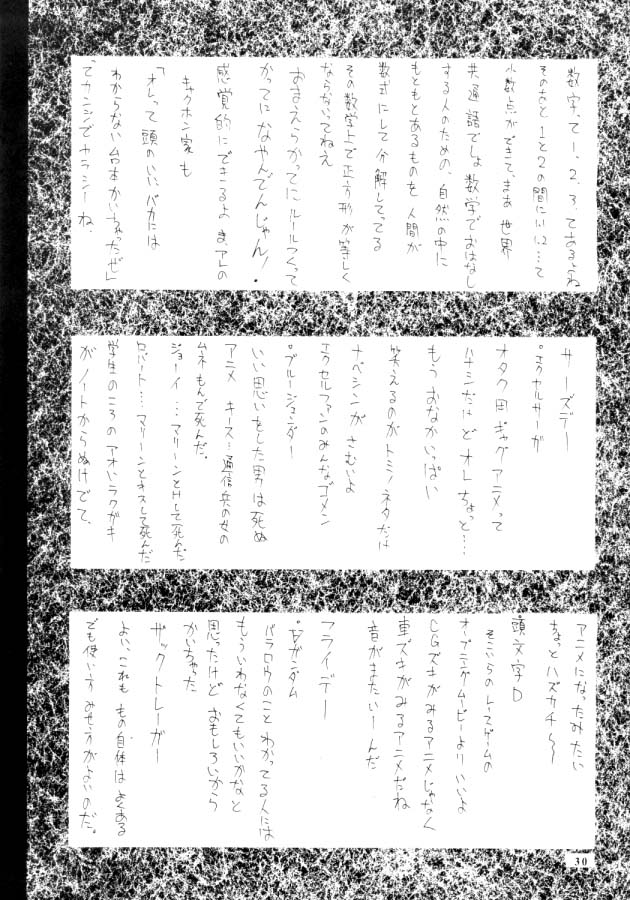 数字、て1、2、3、てあるよね
そのあと1と2の間に1.1、1.2…って
小数点ができて、まあ世界
共通語でしょ数学でおはなし
する人のための、自然の中に
もともとあるものを人間が
数式にして分解してってる
その数学上で正方形が等しく
ならないってねえ
おまえらかってにルールつくって
かってになやんでんじゃん!・
感覚的にできるよま、アレの
キャクホン家も
「オレって頭のいいバカには
わからない台本かいちゃったぜ」
てカンジでナラシーね、
サーズデー
°エクセルサーガ
オタク用ギャグアニメって
ハナシだけどオレちょっと…
もうおなかいっぱい
笑えるのがトミノネタだけ
ナベシンがさむいよ
エクセルファンのみんなゴメン
°ブルージェンダー
いい思いをした男は死ぬ
アニメ キース…通信兵の女の
ムネもんで死んだ。
ジョーイ…マリーンとHして死んだ
ロバート…マリーンとキスして死んだ
学生のころのアオいラクガキ
がノートからぬけでて、
アニメになったみたい
ちょっとハズカチ〜〜
頭文字D
そこいらのレースゲームの
オープニングムービーよりいいよ
CGズキがみるアニメじゃなく
車ズキがみるアニメだね
音がまたいーんだ
フライデー
°∀ガンダム
バラロウのことわかってる人には
もういわなくてもいいかなと
思ったけどおもしろいから
かいちゃった
ザックトレーガー
よいこれももの自体はよくある
でも使い方みせ方がよいのだ。
30